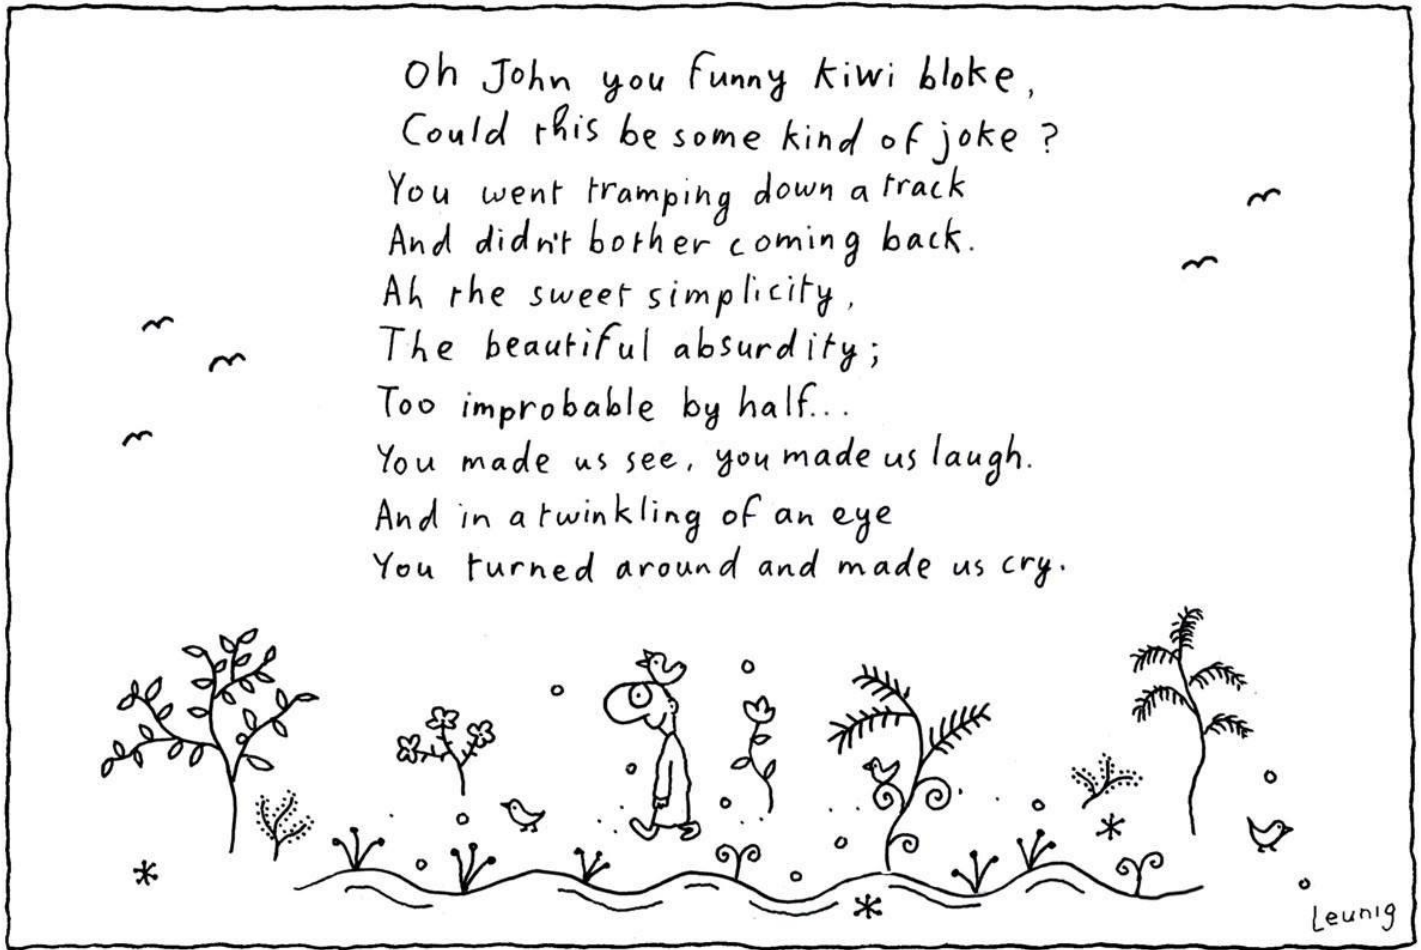 Oh John you funny kiwi bloke,
Could this be some kind of joke?
You went tramping down a track
And didn't bother coming back.
Ah the sweet simplicity,
The beautiful absurdity;
Too improbable by half...
You made us see, you made us laugh.
And in a twinkling of an eye
You turned around and made us cry.
Leunig